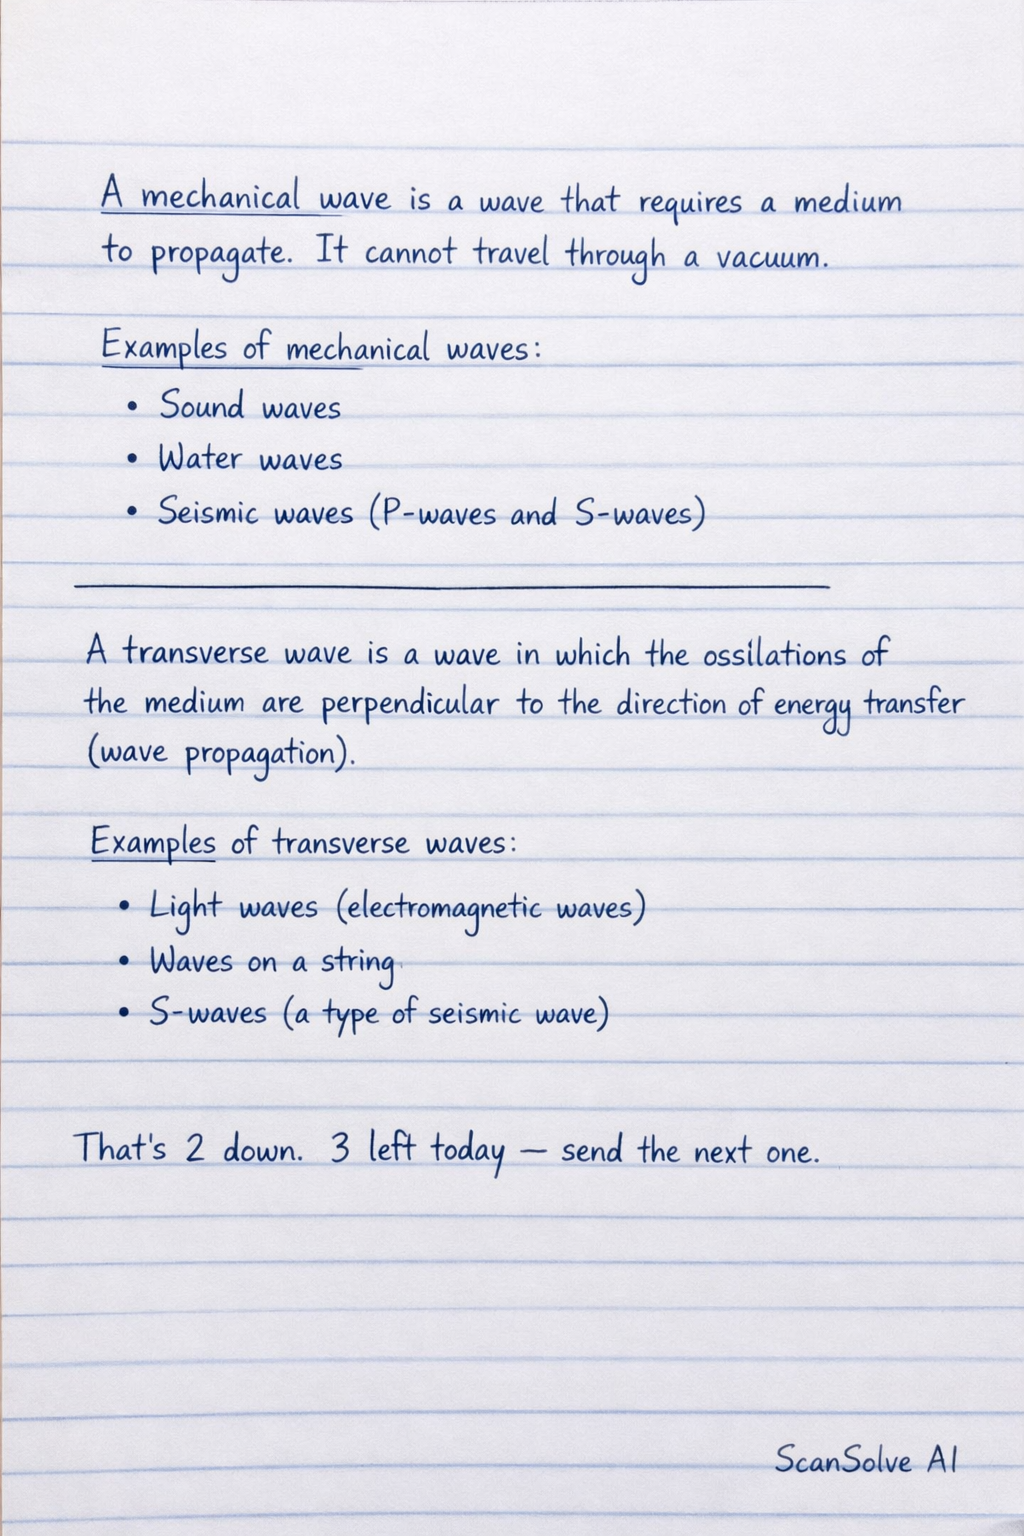 A mechanical wave is a wave that requires a medium
to propagate. It cannot travel through a vacuum.
Examples of mechanical waves:
• Sound waves
• Water waves
• Seismic waves (P-waves and S-waves)
A transverse wave is a wave in which the ossilations of
the medium are perpendicular to the direction of energy transfer
(wave propagation).
Examples of transverse waves:
• Light waves (electromagnetic waves)
• Waves on a string
• S-waves (a type of seismic wave)
That's 2 down. 3 left today — send the next one.
ScanSolve AI